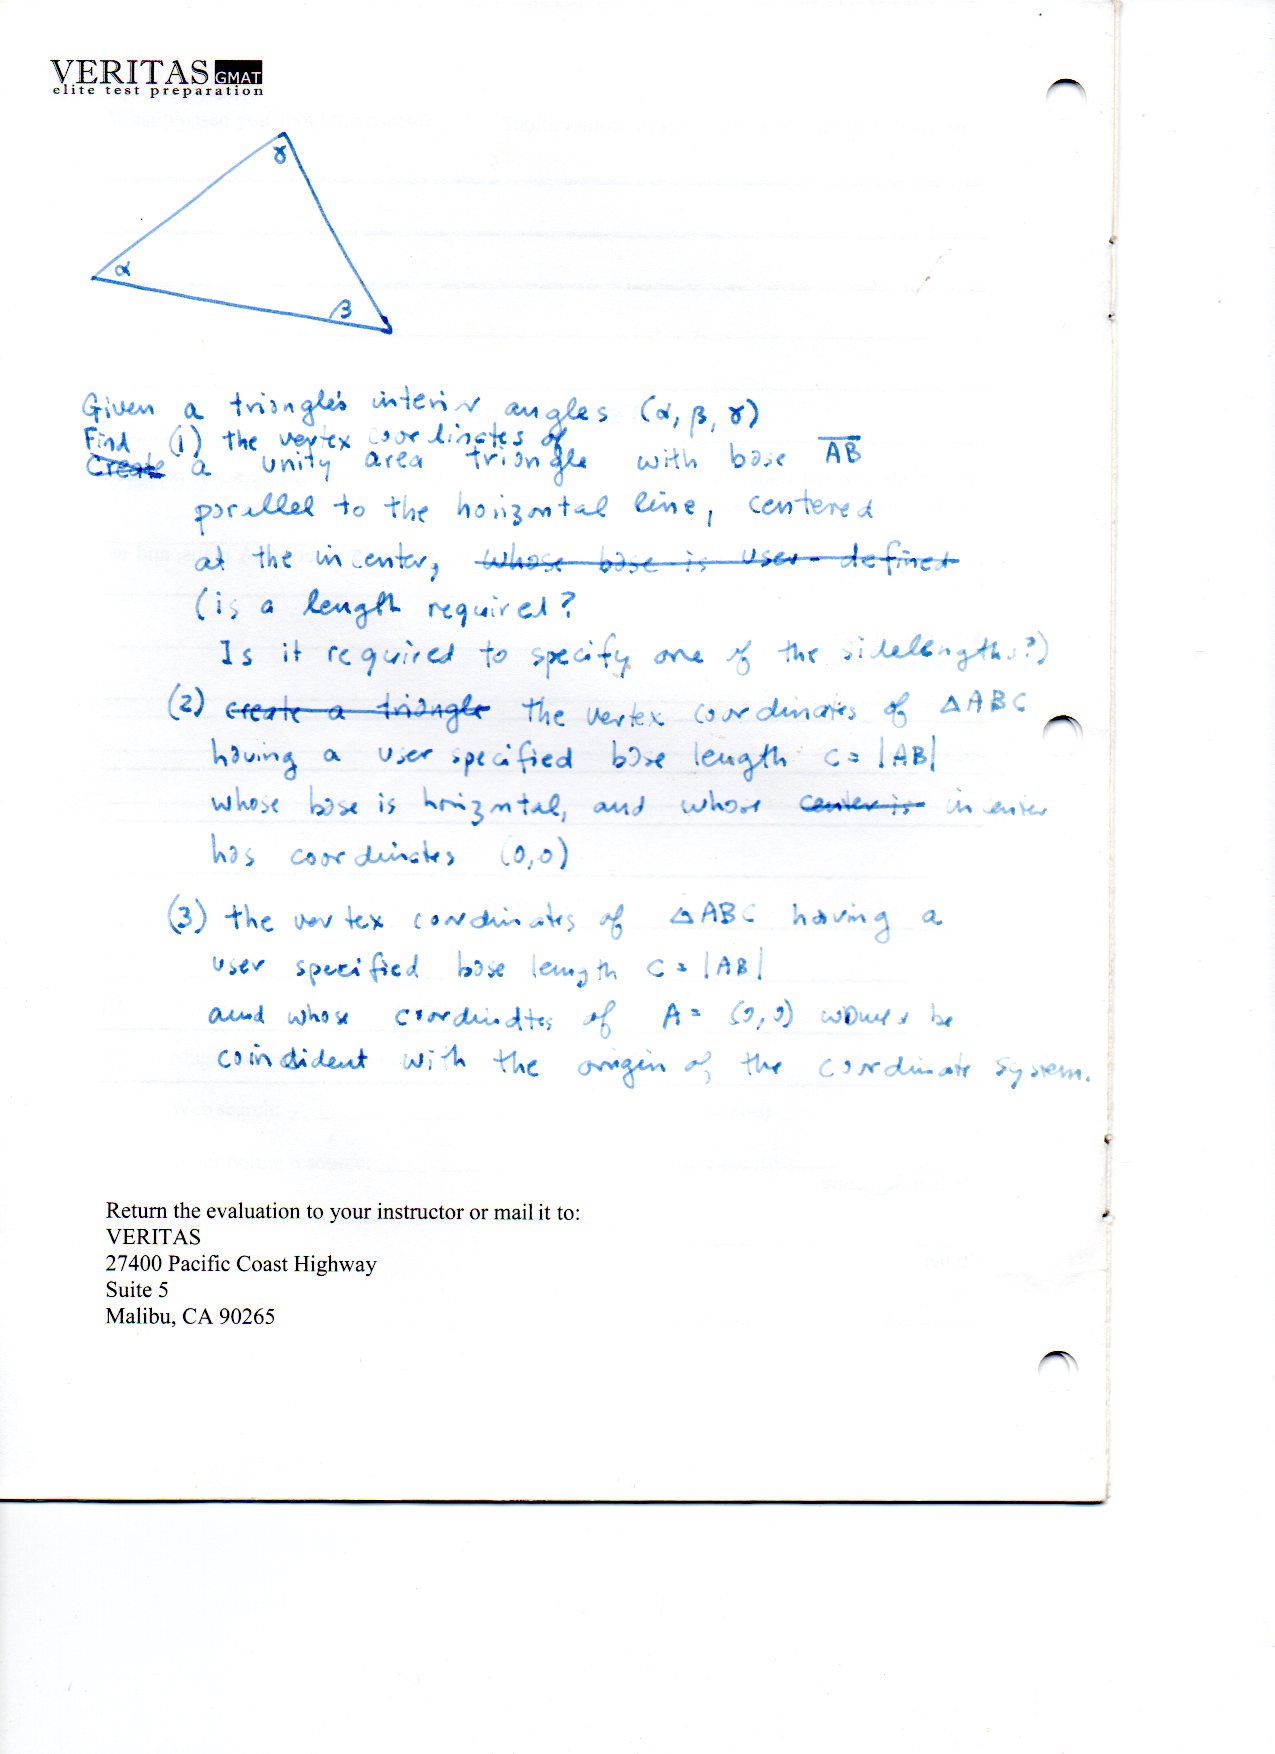 VERITAS GMAT
elite test preparation
γ
α
β
Given a triangle's interior angles (α, β, γ)
Find (1) the vertex coordinates of
Create a unity area triangle with base AB
parallel to the horizontal line, centered
at the incenter, whose base is user-defined
(is a length required?
Is it required to specify one of the sidelengths?)
(2) create a triangle the vertex coordinates of △ABC
having a user specified base length c = |AB|
whose base is horizontal, and whose center is incenter
has coordinates (0,0)
(3) the vertex coordinates of △ABC having a
user specified base length c = |AB|
and whose coordinates of A = (0,0) would be
coindident with the origin of the coordinate system.
Return the evaluation to your instructor or mail it to:
VERITAS
27400 Pacific Coast Highway
Suite 5
Malibu, CA 90265